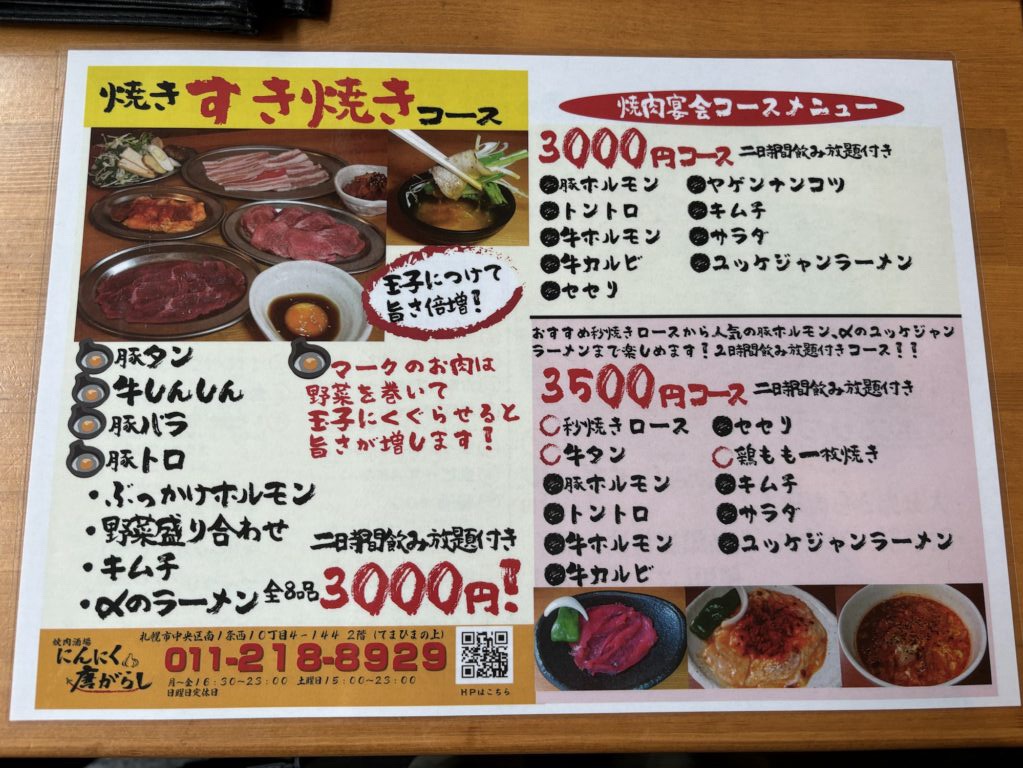 焼きすき焼きコース
玉子につけて
旨さ倍増!
豚タン
牛しんしん
豚バラ
豚トロ
マークのお肉は
野菜を巻いて
玉子にくぐらせると
旨さが増します!
・ぶっかけホルモン
・野菜盛り合わせ
・キムチ
・〆のラーメン 全8品
二時間飲み放題付き
3000円!
焼肉酒場
にんにく
唐がらし
札幌市中央区南1条西10丁目4-144 2階(てまひまの上)
011-218-8929
月~金16:30~23:00 土曜日15:00~23:00
日曜日定休日
HPはこちら
焼肉宴会コースメニュー
3000円コース 二時間飲み放題付き
●豚ホルモン ●ヤゲンナンコツ
●トントロ ●キムチ
●牛ホルモン ●サラダ
●牛カルビ ●ユッケジャンラーメン
●セセリ
おすすめ秒焼きロースから人気の豚ホルモン、〆のユッケジャン
ラーメンまで楽しめます!2時間飲み放題付きコース!!
3500円コース 二時間飲み放題付き
○秒焼きロース ●セセリ
○牛タン ○鶏もも一枚焼き
●豚ホルモン ●キムチ
●トントロ ●サラダ
●牛ホルモン ●ユッケジャンラーメン
●牛カルビ